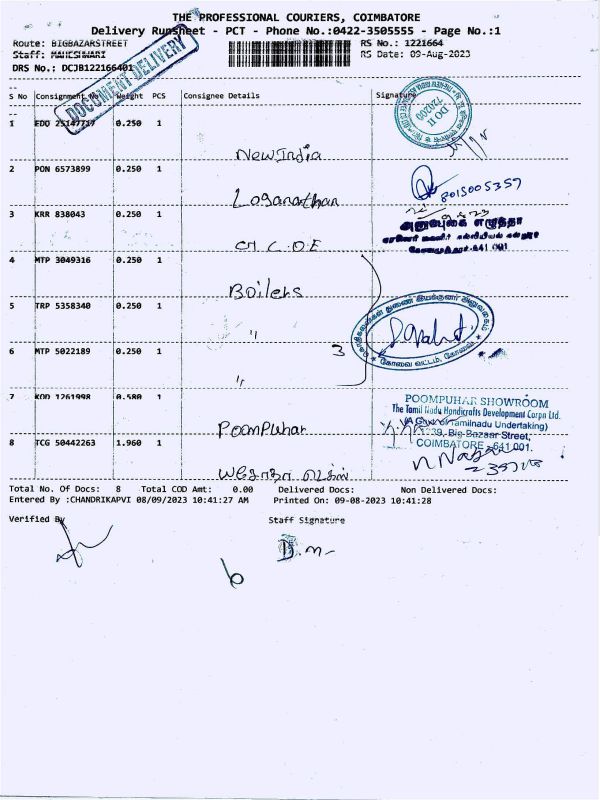 THE PROFESSIONAL COURIERS, COIMBATORE
Delivery Runsheet - PCT - Phone No.:0422-3505555 - Page No.:1
Route: BIGBAZARSTREET
RS No.: 1221664
Staff: MAHESHWARI
RS Date: 09-Aug-2023
DRS No.: DCJB122166401
DOCUMENT DELIVERY
S No Consignment No Weight PCS Consignee Details Signature
1 EDO 25147717 0.250 1
New India
2 PON 6573899 0.250 1
Loganathan
8015005359
3 KRR 838043 0.250 1
C.O.E
அனுபுகை எழுத்தர்
4 MTP 3049316 0.250 1
Boilers
5 TRP 5358340 0.250 1
"
6 MTP 5022189 0.250 1
" 3
7 KOD 1261998 0.580 1
Poompuhar
POOMPUHAR SHOWROOM
The Tamil Nadu Handicrafts Development Corpn Ltd.
Tamilnadu Undertaking)
Big Bazaar Street,
COIMBATORE - 641 001.
8 TCG 50442263 1.960 1
Total No. Of Docs: 8 Total COD Amt: 0.00 Delivered Docs: Non Delivered Docs:
Entered By :CHANDRIKAPVI 08/09/2023 10:41:27 AM Printed On: 09-08-2023 10:41:28
Verified By
Staff Signature